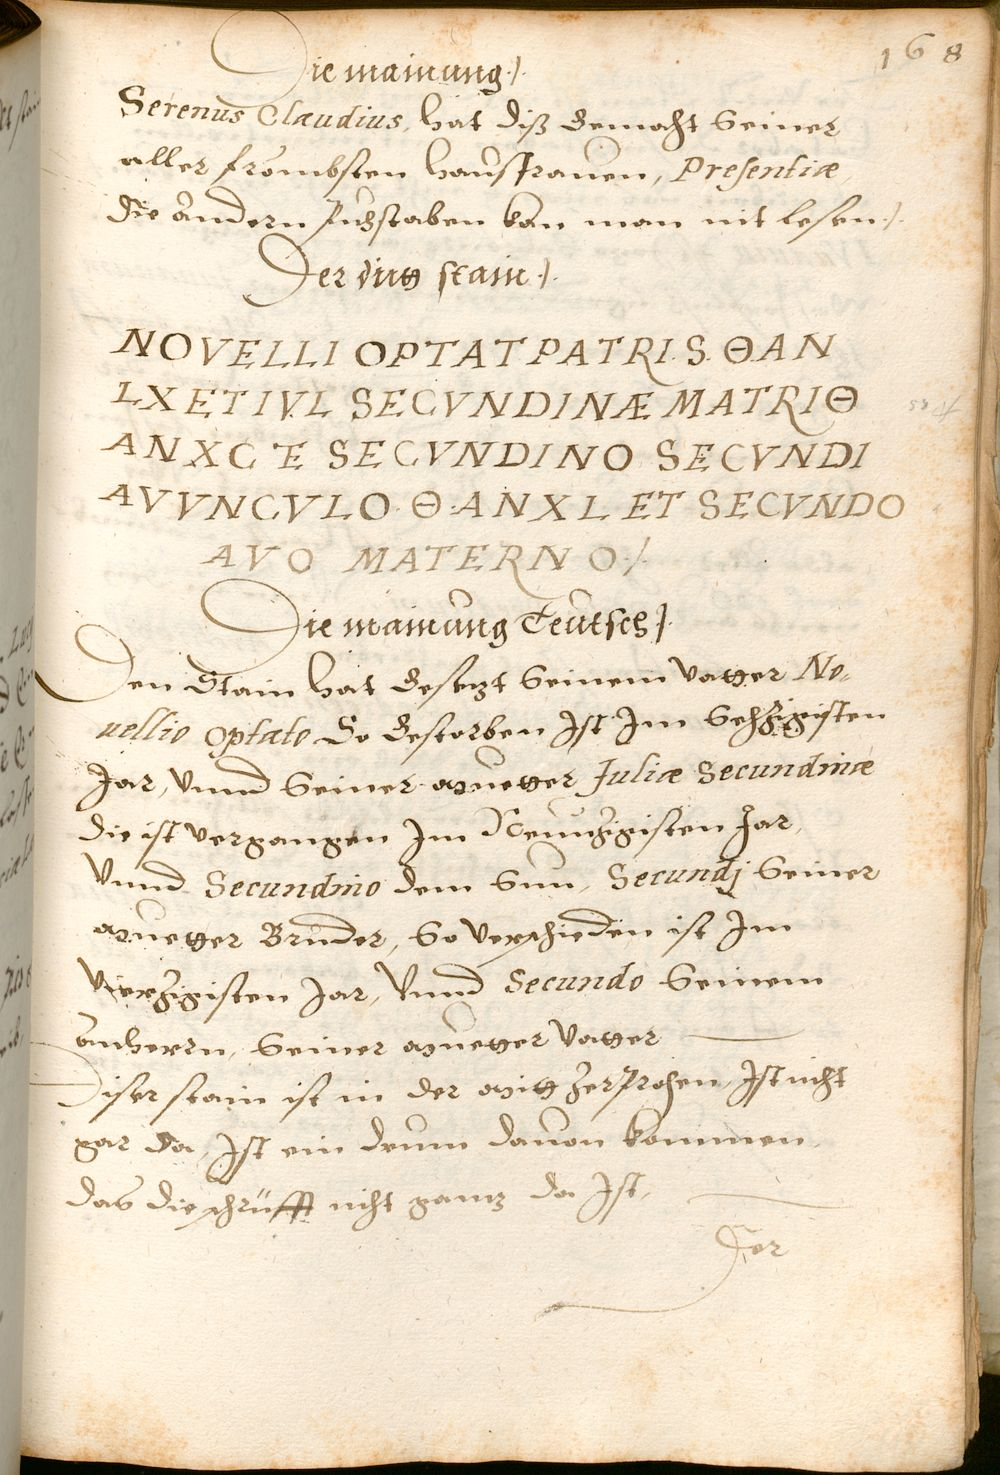 168
Die mainung ./.
Serenus Claudius, hat diß Gemacht Seiner
aller frombsten hausfrauen, Presentiæ,
die andern Puchstaben kan man nit lesen ./.
Der drit stain ./.
NOVELLI OPTAT PATRI. S. ΘAN
LX ET IVL SECVNDINÆ MATRI Θ
AN XC E SECVNDINO SECVNDI
AVVNCVLO · Θ · AN XL ET SECVNDO
AVO MATERNO ./.
Die mainung Teutsch ./.
Den Stain hat Gesetzt Seinem Vatter No-
uellio Optato So Gestorben Ist Im Sechzigisten
Jar, Vnnd Seiner Mueter Juliæ Secundinæ
die ist vergangen Im Neunzigisten Jar,
Vnnd Secundino dem Sun, Secundj Seiner
Mueter Bruder, So verschieden ist Im
Vierzigisten Jar, Vnnd Secundo Seinem
anherrn, Seiner Mueter Vatter
Diser stain ist in der Mitt zerprochen, Ist nicht
gar da, Ist ein drum dauon kommen,
das die schrüfft nicht gantz da Ist,
Der